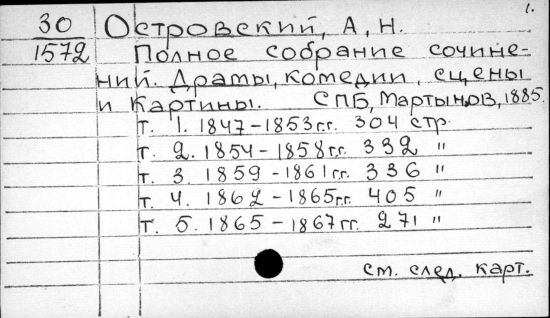 1.
30 Островский, А, Н.
1572 Полное собрание сочине-
ний. Драмы, комедии, сцены
и картины. СПБ, Мартынов, 1885.
т. 1. 1847-1853г.г. 304 стр.
т. 2. 1854-1858г.г. 332 "
т. 3. 1859-1861г.г. 336 "
т. 4. 1862-1865г.г. 405 "
т. 5. 1865-1867г.г. 271 "
см. след. карт.